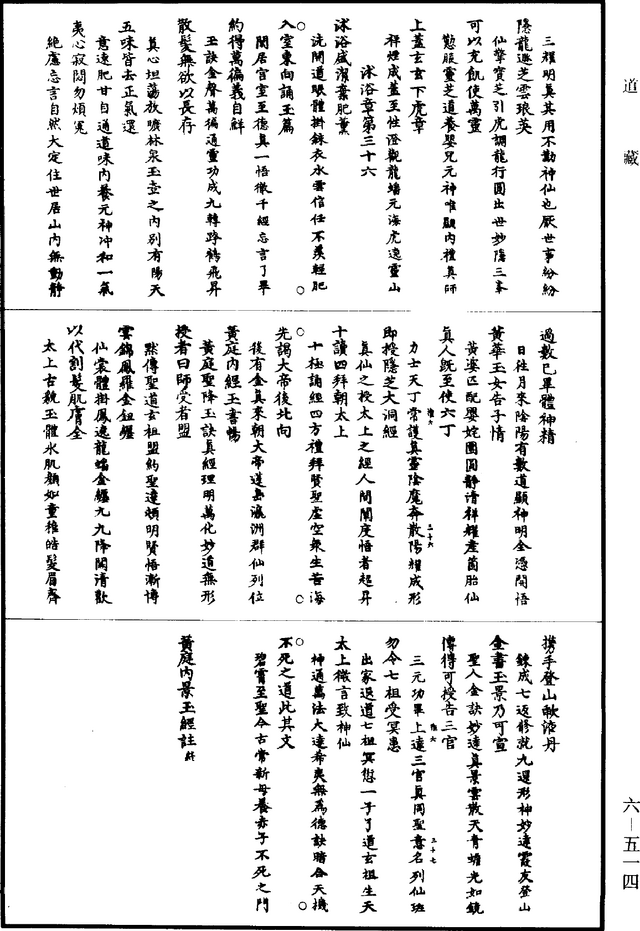 道藏
三耀明真其用不勤神仙也厭世事紛紛
隱龍遯芝雲琅英
仙擎寶芝引虎調龍行圓出世妙隱三峯
可以充飢使萬靈
懃服靈芝道養嬰兒元神唯顯內禮真師
上蓋玄玄下虎章
祥煙成蓋至性澄觀龍蟠元海虎遶靈山
沐浴章第三十六
沐浴盛潔棄肥薰
洗開道眼體掛銖衣水雲信任不羨輕肥
入室東向誦玉篇
閑居宮室至德真一悟徹千經忘言了畢
約得萬徧義自鮮
玉訣金聲萬徧通靈功成九轉跨鶴飛昇
散髮無欲以長存
真心坦蕩放曠林泉玉壺之內別有陽天
五味皆去正氣還
意遠肥甘自通道味內養元神冲和一氣
夷心寂悶勿煩冤
絕慮忘言自然大定住世居山內無動靜
過數已畢體神精
日往月來陰陽有數道顯神明全憑開悟
黃華玉女告子情
黃婆匹配嬰姹團圓靜清祥耀產箇胎仙
真人既至使六丁
力士天丁常護真靈陰魔奔散陽耀成形
即授隱芝大洞經
真仙之授太上之經人間闡度悟者超昇
十讀四拜朝太上
十極誦經四方禮拜賢聖虛空衆生苦海
先謁大帝後北向
後有金真來朝大帝蓬島瀛洲群仙列位
黃庭內經玉書暢
黃庭聖降玉訣真經理明萬化妙道無形
授者曰師受者盟
默傳聖道玄祖盟約聖達頓明賢悟漸博
雲錦鳳羅金鈕纏
仙裳體掛鳳逸龍蟠金纏九九降闕清歡
以代割髮肌膚全
太上古貌玉體氷肌顏如童稚皓髮眉齊
攜手登山歃液丹
鍊成七返修就九還形神妙達霞友登山
金書玉景乃可宣
聖人金訣妙達真景雲散天青蟾光如鏡
傳得可授告三官
三元功畢上達三官真闕聖意名列仙班
勿令七祖受冥患
出家退道七祖冥愆一子了道玄祖生天
太上微言致神仙
神通萬法大達希夷無為德訣暗合天機
不死之道此其文
碧霄至聖今古常新母養赤子不死之門
黃庭內景玉經註終
六－五一四